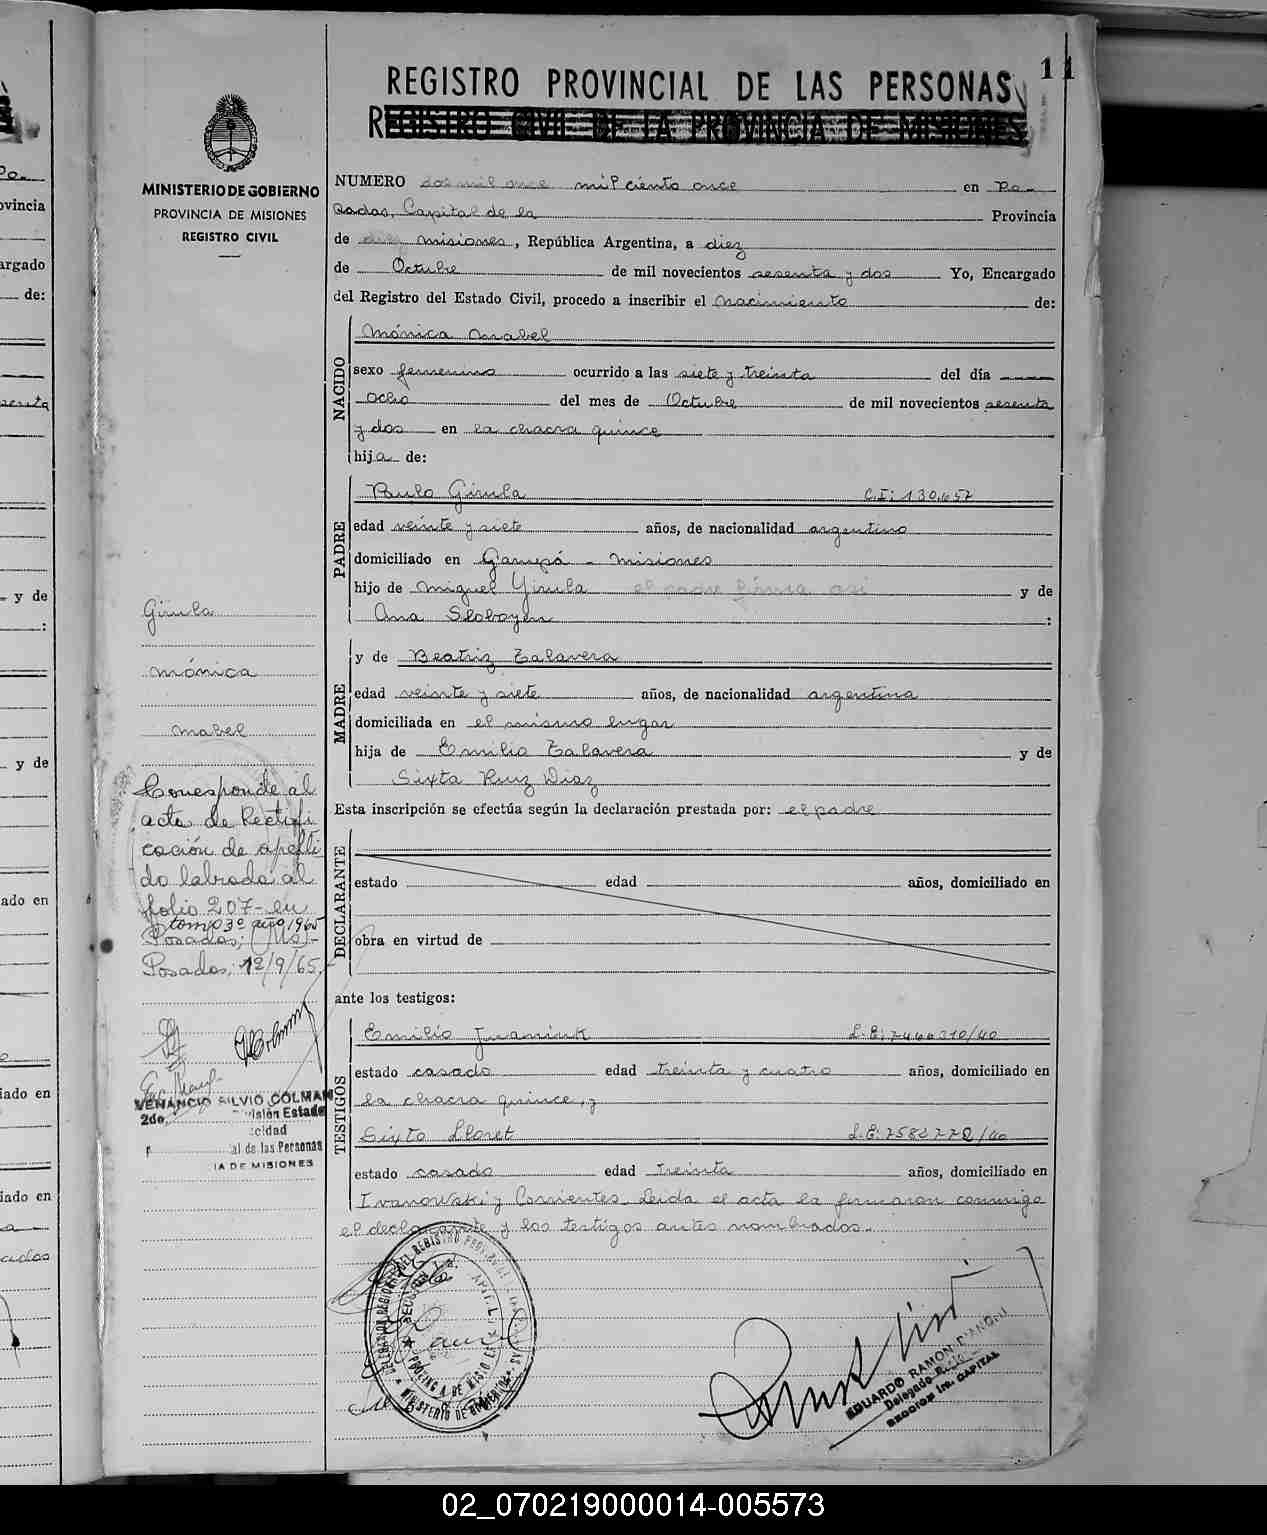 11
REGISTRO PROVINCIAL DE LAS PERSONAS
REGISTRO CIVIL DE LA PROVINCIA DE MISIONES
MINISTERIO DE GOBIERNO
PROVINCIA DE MISIONES
REGISTRO CIVIL
NUMERO dos mil once mil ciento once en Po-
sadas, Capital de la Provincia
de misiones, República Argentina, a diez
de Octubre de mil novecientos sesenta y dos Yo, Encargado
del Registro del Estado Civil, procedo a inscribir el nacimiento de:
NACIDO
Mónica Mabel
sexo femenino ocurrido a las siete y treinta del día
ocho del mes de Octubre de mil novecientos sesenta
y dos en la chacra quince
hija de:
PADRE
Paulo Girula C.I: 130.657
edad veinte y siete años, de nacionalidad argentino
domiciliado en Garupá - Misiones
hijo de Miguel Girula el padre firma así y de
Ana Sloboyen :
MADRE
y de Beatriz Talavera
edad veinte y siete años, de nacionalidad argentina
domiciliada en el mismo lugar
hija de Emilio Talavera y de
Sixta Ruiz Diaz
Esta inscripción se efectúa según la declaración prestada por: el padre
DECLARANTE
estado edad años, domiciliado en
obra en virtud de
ante los testigos:
TESTIGOS
Emilio Juaniuk L.E: 7466310/40
estado casado edad treinta y cuatro años, domiciliado en
la chacra quince, y
Sixto Lloret L.E: 7582772/40
estado casado edad treinta años, domiciliado en
Ivanowski y Corrientes. Leida el acta la firmaron conmigo
el declarante y los testigos antes nombrados.-
Girula
Mónica
Mabel
Corresponde al
acta de Rectifi
cación de apelli
do labrada al
folio 207- en
tomo 3º año 1965
Posadas; (Ms)-
Posadas, 12/9/65.
VENANCIO SILVIO COLMAN
2do.
División Estado
al de las Personas
IA DE MISIONES
EDUARDO RAMON
Delegado
SECCION 1ra. CAPITAL
02_070219000014-005573